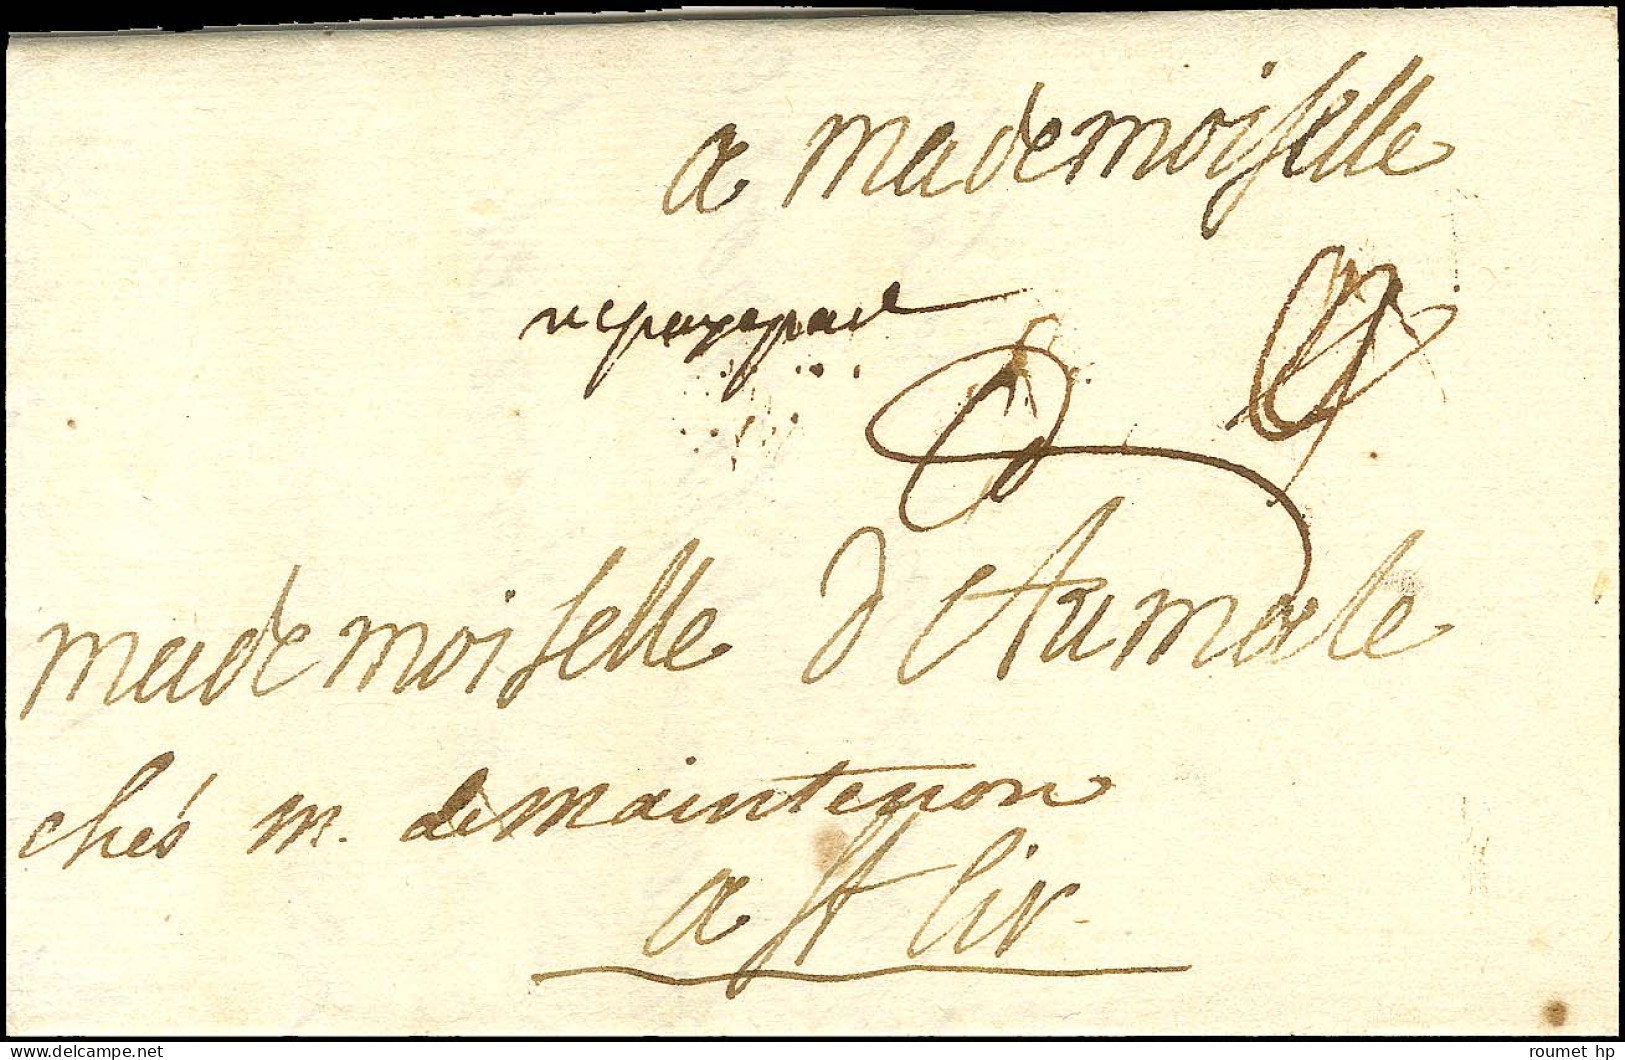 a mademoiselle
mademoiselle d'Aumale
chés m. de maintenon
a st Cir
delcampe.net
roumet hp